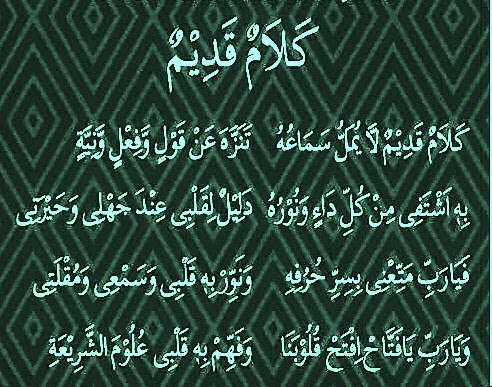 كَلَامٌ قَدِيْمٌ
كَلَامٌ قَدِيْمٌ لَّا يُمَلُّ سَمَاعُهُ تَنَزَّهَ عَنْ قَوْلٍ وَّفِعْلٍ وَّنِيَّةٍ
بِهِ اَشْتَفِى مِنْ كُلِّ دَاءٍ وَنُوْرُهُ دَلِيْلٌ لِقَلْبِى عِنْدَ جَهْلِى وَحَيْرَتِى
فَيَارَبِّ مَتِّعْنِى بِسِرِّ حُرُفِهِ وَنَوِّرْ بِهِ قَلْبِى وَسَمْعِى وَمُقْلَتِى
وَيَارَبِّ يَافَتَّاحُ اِفْتَحْ قُلُوْبَنَا وَفَهِّمْ بِهِ قَلْبِى عُلُوْمَ الشَّرِيْعَةِ